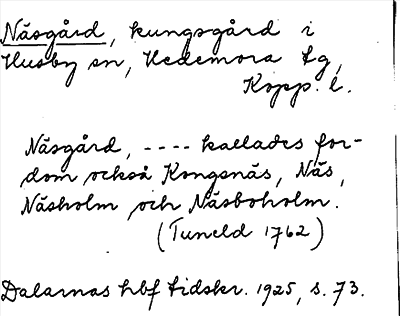 Näsgård, kungsgård i
Husby sn, Hedemora tg,
Kopp. l.
Näsgård, ---- kallades for-
dom också Kongsnäs, Näs,
Näsholm och Näsboholm.
(Tuneld 1762)
Dalarnas hbf tidskr. 1925, s. 73.